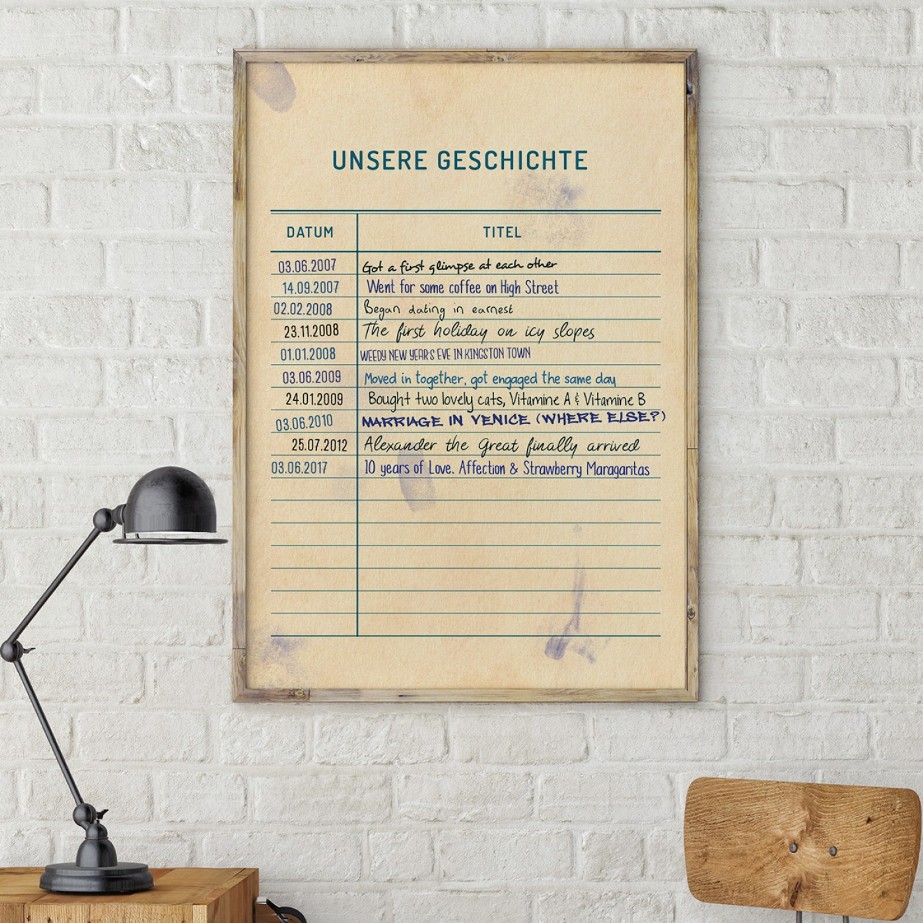 UNSERE GESCHICHTE
DATUM TITEL
03.06.2007 Got a first glimpse at each other
14.09.2007 Went for some coffee on High Street
02.02.2008 Began dating in earnest
23.11.2008 The first holiday on icy slopes
01.01.2008 WEEDY NEW YEARS EVE IN KINGSTON TOWN
03.06.2009 Moved in together, got engaged the same day
24.01.2009 Bought two lovely cats, Vitamine A & Vitamine B
03.06.2010 MARRIAGE IN VENICE (WHERE ELSE?)
25.07.2012 Alexander the Great finally arrived
03.06.2017 10 years of Love. Affection & Strawberry Maragaritas